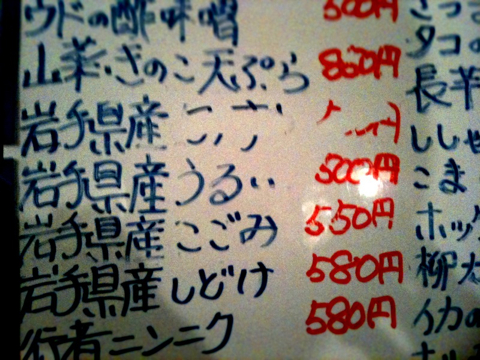 ウドの酢味噌 500円
山菜・きのこ天ぷら 850円
岩手県産
岩手県産うるい 500円
岩手県産こごみ 550円
岩手県産しどけ 580円
行者ニンニク 580円
タコの
長芋
ししゃ
こま
ホッケ
柳
イカの